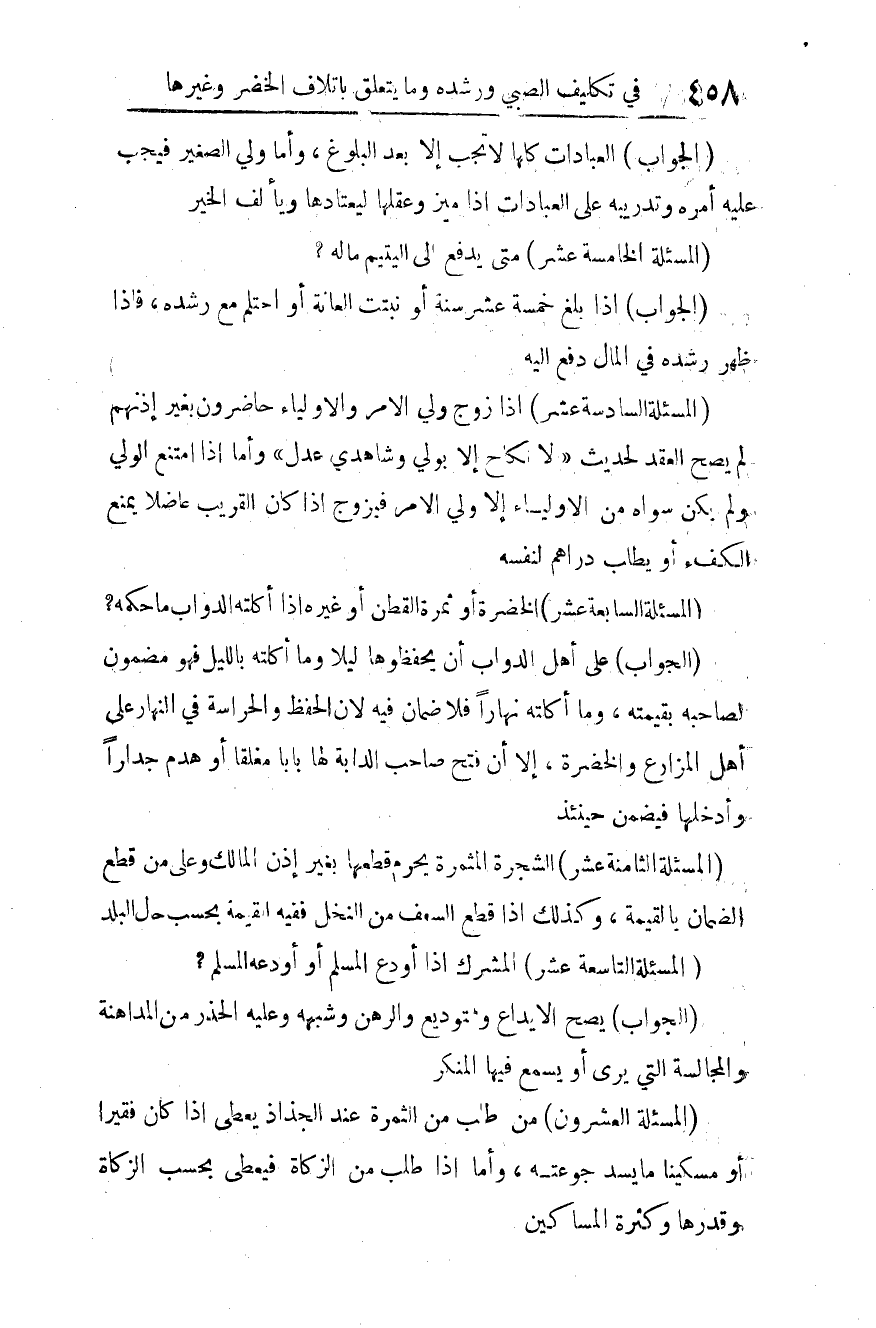 ٤٥٨ في تكليف الصبي ورشده وما يتعلق باتلاف الخضر وغيرها
(الجواب) العبادات كلها لاتجب إلا بعد البلوغ ، وأما ولي الصغير فيجب
عليه أمره وتدريبه على العبادات اذا ميز وعقلها ليعتادها ويألف الخير
(المسئلة الخامسة عشر) متى يدفع الى اليتيم ماله ؟
(الجواب) اذا بلغ خمسة عشر سنة أو نبتت العانة أو احتلم مع رشده ، فاذا
ظهر رشده في المال دفع اليه
(المسئلة السادسة عشر) اذا زوج ولي الامر والاولياء حاضرون بغير إذنهم
لم يصح العقد لحديث « لا نكاح إلا بولي وشاهدي عدل » وأما اذا امتنع الولي
ولم يكن سواه من الاولياء إلا ولي الامر فيزوج اذا كان القريب عاضلا يمنع
الكفء أو يطلب دراهم لنفسه
(المسئلة السابعة عشر) الخضرة أو ثمرة القطان أو غيره اذا أكلته الدواب ماحكمه؟
(الجواب) على أهل الدواب أن يحفظوها ليلا وما أكلته بالليل فهو مضمون
لصاحبه بقيمته ، وما أكلته نهاراً فلا ضمان فيه لان الحفظ والحراسة في النهار على
أهل المزارع والخضرة ، إلا أن فتح صاحب الدابة لها بابا مغلقا أو هدم جداراً
وأدخلها فيضمن حينئذ
(المسئلة الثامنة عشر) الشجرة المثمرة يحرم قطعها بغير إذن المالك وعلى من قطع
الضمان بالقيمة ، وكذلك اذا قطع السعف من النخل ففيه القيمة بحسب حال البلد
(المسئلة التاسعة عشر) المشرك اذا أودع المسلم أو أودعه المسلم ؟
(الجواب) يصح الايداع والتوديع والرهن وشبهه وعليه الحذر من المداهنة
والمجالسة التي يرى أو يسمع فيها المنكر
(المسئلة العشرون) من طلب من الثمرة عند الجذاذ يعطى اذا كان فقيرا
أو مسكينا مايسد جوعته ، وأما اذا طلب من الزكاة فيعطى بحسب الزكاة
وقدرها وكثرة المساكين